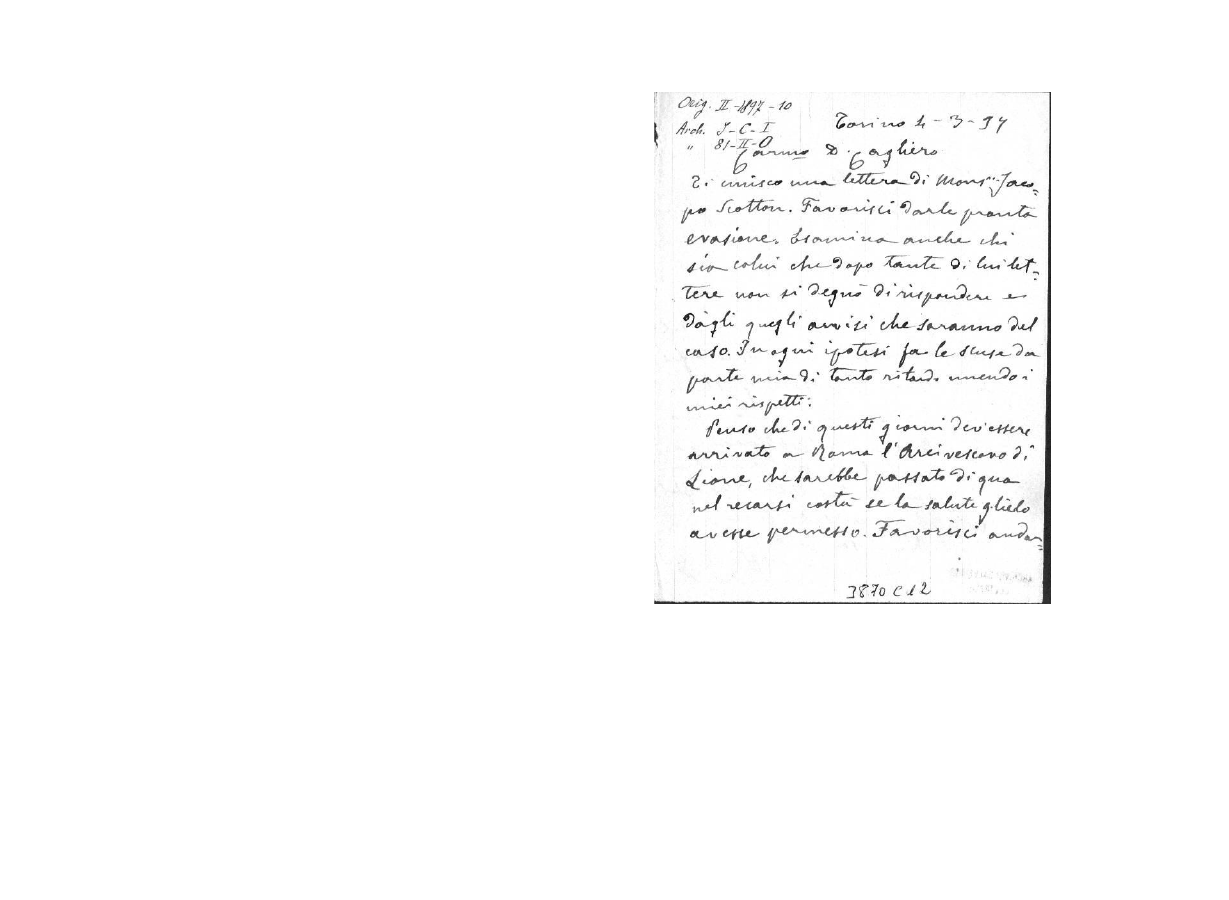 Orig. II-1897-10
Arch. J-C-I
" 81-II-O
Torino 4-3-97
Carmo D. Cagliero
Ti unisco una lettera di Monsr Jaco=
po Scotton. Favorisci darle pronta
evasione. Esamina anche chi
sia colui che dopo tante di lui let=
tere non si degnò di rispondere e
dàgli quegli avvisi che saranno del
caso. In ogni ipotesi fa le scuse da
parte mia di tanto ritardo unendo i
miei rispetti.
Penso che di questi giorni dev'essere
arrivato a Roma l'Arcivescovo di
Lione, che sarebbe passato di qua
nel recarsi costà se la salute glielo
avesse permesso. Favorisci andar=
3870 C 12